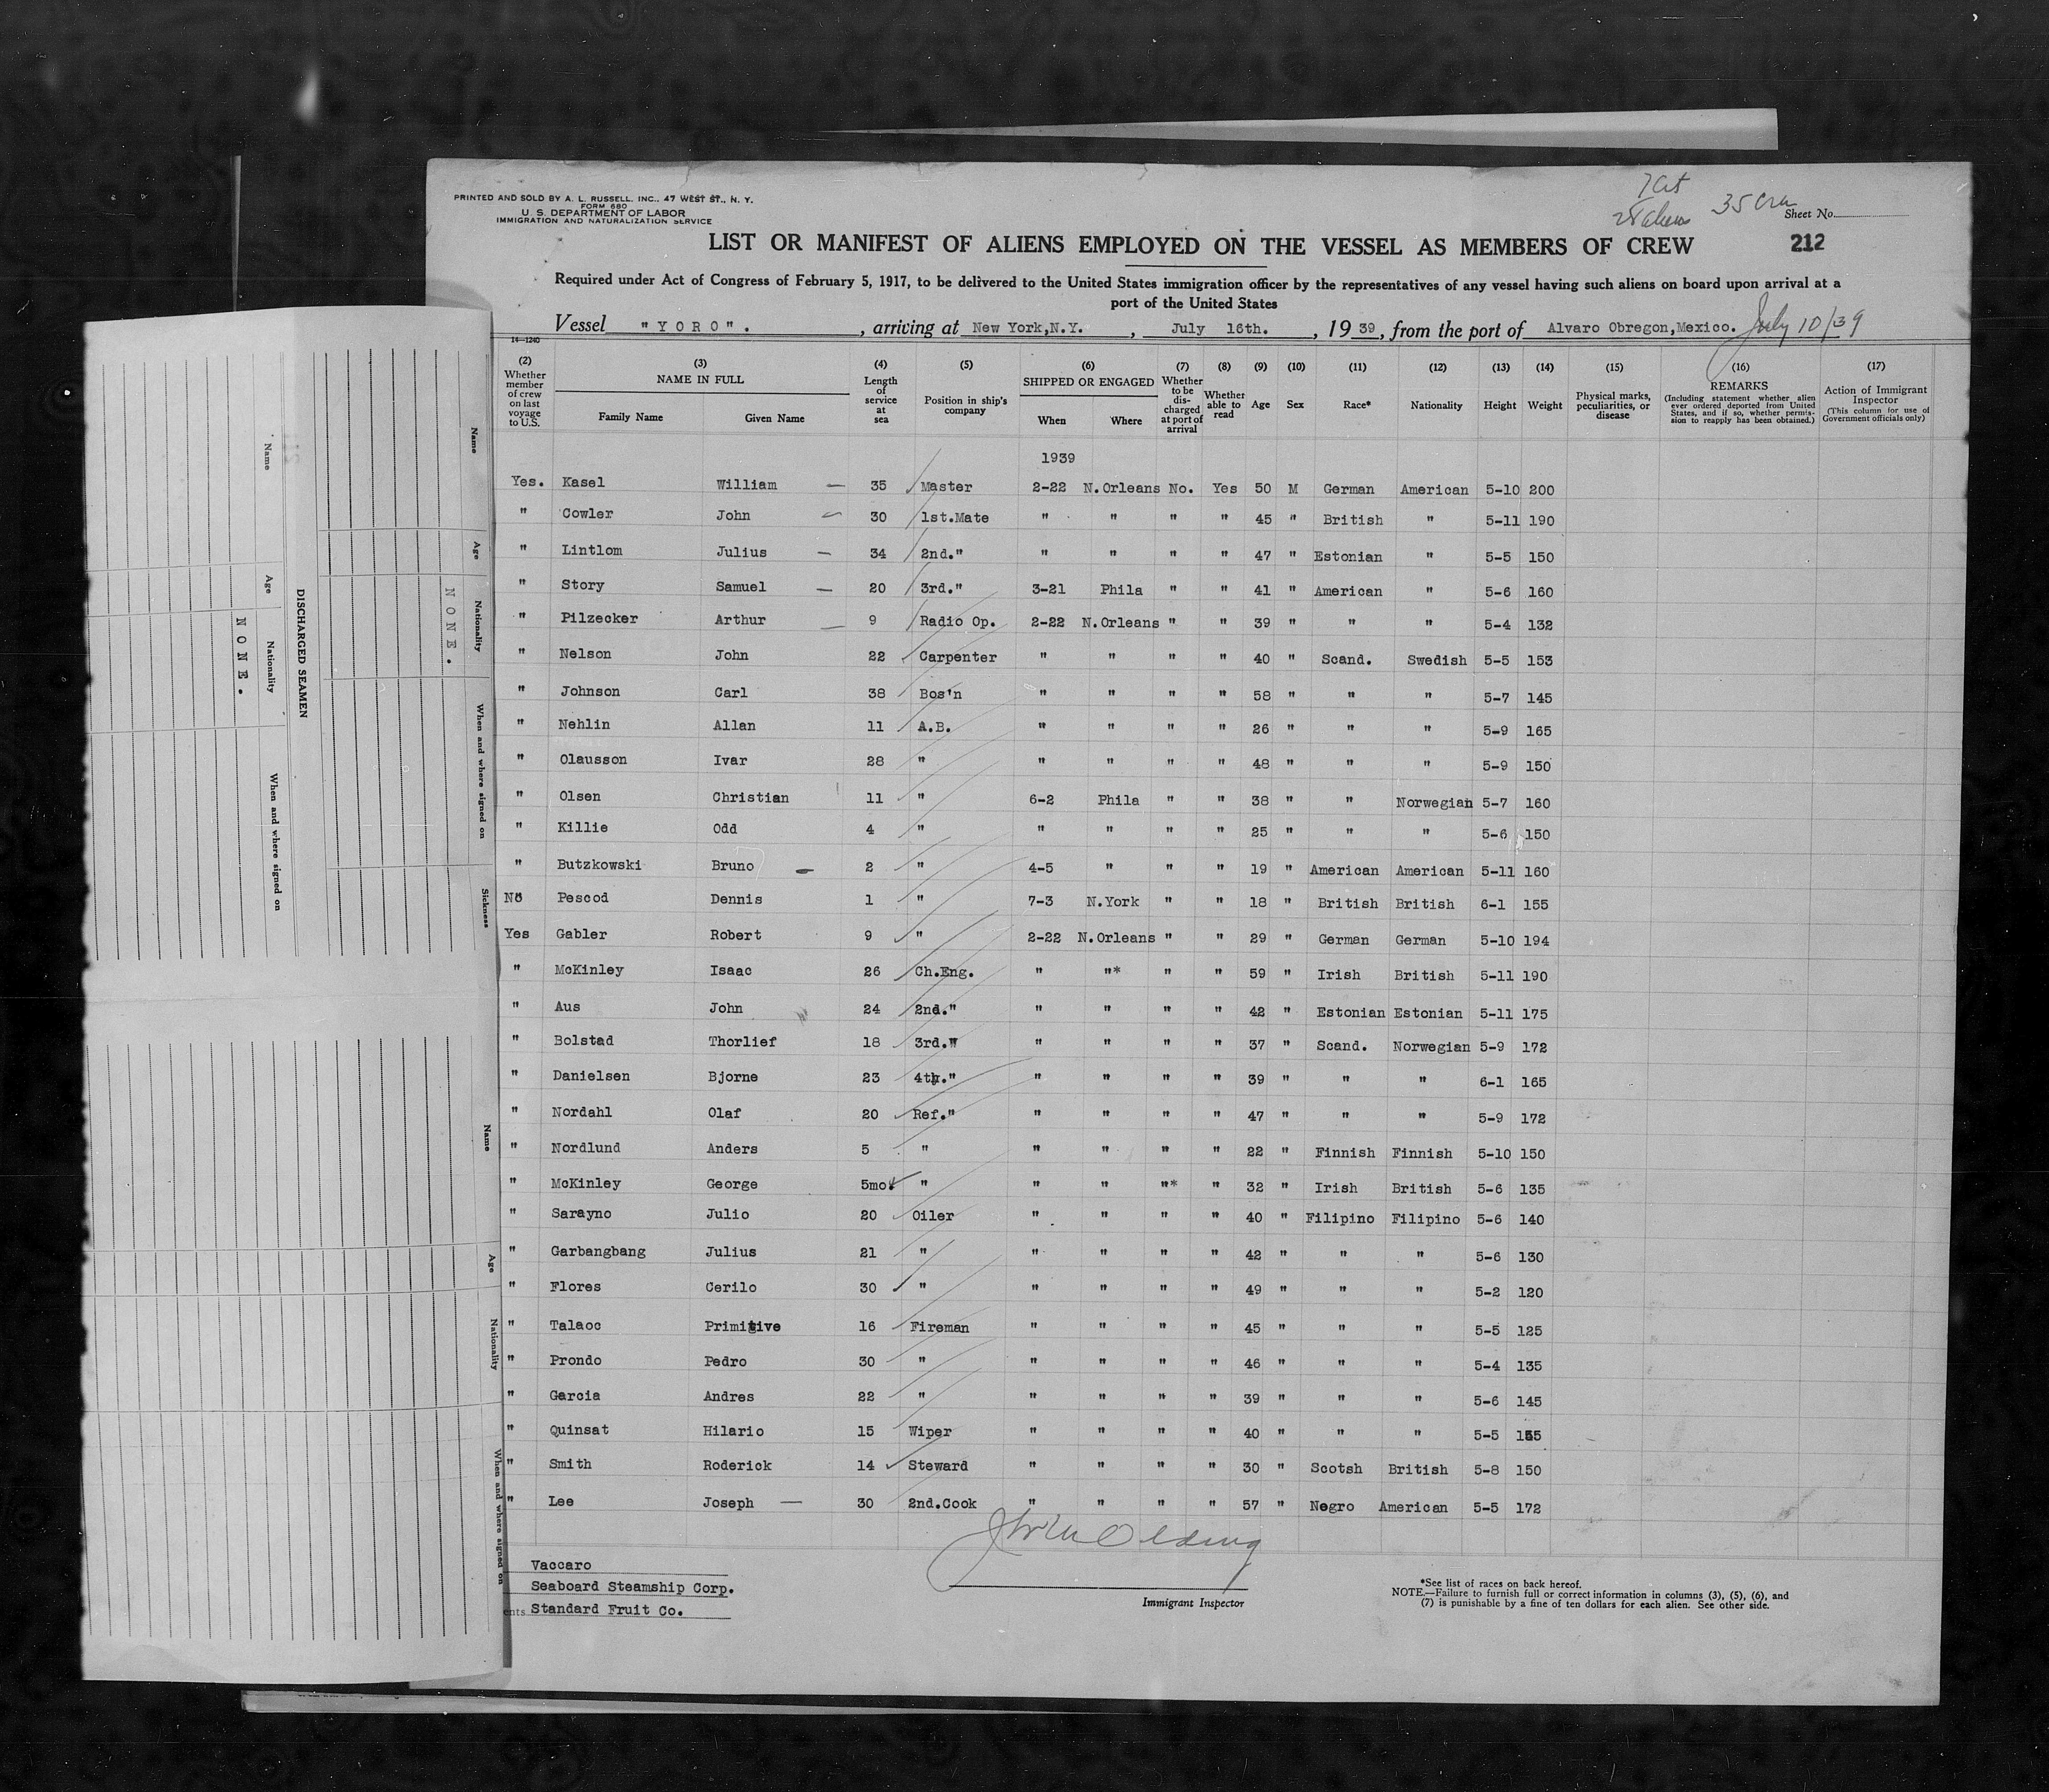 PRINTED AND SOLD BY A. L. RUSSELL, INC., 47 WEST ST., N. Y.
FORM 680
U. S. DEPARTMENT OF LABOR
IMMIGRATION AND NATURALIZATION SERVICE
35
Sheet No.
LIST OR MANIFEST OF ALIENS EMPLOYED ON THE VESSEL AS MEMBERS OF CREW
212
Required under Act of Congress of February 5, 1917, to be delivered to the United States immigration officer by the representatives of any vessel having such aliens on board upon arrival at a
port of the United States
Vessel "YORO". , arriving at New York,N.Y. , July 16th. , 1939, from the port of Alvaro Obregon,Mexico. July 10/39
14—1240
(2) Whether member of crew on last voyage to U.S.
(3) NAME IN FULL Family Name Given Name
(4) Length of service at sea
(5) Position in ship's company
(6) SHIPPED OR ENGAGED When Where
(7) Whether to be discharged at port of arrival
(8) Whether able to read
(9) Age
(10) Sex
(11) Race*
(12) Nationality
(13) Height
(14) Weight
(15) Physical marks, peculiarities, or disease
(16) REMARKS (Including statement whether alien ever ordered deported from United States, and if so, whether permission to reapply has been obtained.)
(17) Action of Immigrant Inspector (This column for use of Government officials only)
1939
Yes. Kasel William — 35 Master 2-22 N.Orleans No. Yes 50 M German American 5-10 200
" Cowler John 30 1st.Mate " " " " 45 " British " 5-11 190
" Lintlom Julius — 34 2nd." " " " " 47 " Estonian " 5-5 150
" Story Samuel — 20 3rd." 3-21 Phila " " 41 " American " 5-6 160
" Pilzecker Arthur — 9 Radio Op. 2-22 N.Orleans " " 39 " " " 5-4 132
" Nelson John 22 Carpenter " " " " 40 " Scand. Swedish 5-5 153
" Johnson Carl 38 Bos'n " " " " 58 " " " 5-7 145
" Nehlin Allan 11 A.B. " " " " 26 " " " 5-9 165
" Olausson Ivar 28 " " " " " 48 " " " 5-9 150
" Olsen Christian 11 " 6-2 Phila " " 38 " " Norwegian 5-7 160
" Killie Odd 4 " " " " " 25 " " " 5-6 150
" Butzkowski Bruno — 2 " 4-5 " " " 19 " American American 5-11 160
No Pescod Dennis 1 " 7-3 N.York " " 18 " British British 6-1 155
Yes Gabler Robert 9 " 2-22 N.Orleans " " 29 " German German 5-10 194
" McKinley Isaac 26 Ch.Eng. " "* " " 59 " Irish British 5-11 190
" Aus John 24 2nd." " " " " 42 " Estonian Estonian 5-11 175
" Bolstad Thorlief 18 3rd." " " " " 37 " Scand. Norwegian 5-9 172
" Danielsen Bjorne 23 4th." " " " " 39 " " " 6-1 165
" Nordahl Olaf 20 Ref." " " " " 47 " " " 5-9 172
" Nordlund Anders 5 " " " " " 22 " Finnish Finnish 5-10 150
" McKinley George 5mo. " " " "* " 32 " Irish British 5-6 135
" Sarayno Julio 20 Oiler " " " " 40 " Filipino Filipino 5-6 140
" Garbangbang Julius 21 " " " " " 42 " " " 5-6 130
" Flores Cerilo 30 " " " " " 49 " " " 5-2 120
" Talaoc Primitive 16 Fireman " " " " 45 " " " 5-5 125
" Prondo Pedro 30 " " " " " 46 " " " 5-4 135
" Garcia Andres 22 " " " " " 39 " " " 5-6 145
" Quinsat Hilario 15 Wiper " " " " 40 " " " 5-5
" Smith Roderick 14 Steward " " " " 30 " Scotsh British 5-8 150
" Lee Joseph — 30 2nd.Cook " " " " 57 " Negro American 5-5 172
Vaccaro
Seaboard Steamship Corp.
ents Standard Fruit Co.
Immigrant Inspector
*See list of races on back hereof.
NOTE.—Failure to furnish full or correct information in columns (3), (5), (6), and
(7) is punishable by a fine of ten dollars for each alien. See other side.
Name Age Nationality When and where signed on Sickness
NONE.
DISCHARGED SEAMEN
Name Age Nationality When and where signed on
NONE.
Name Age Nationality When and where signed on